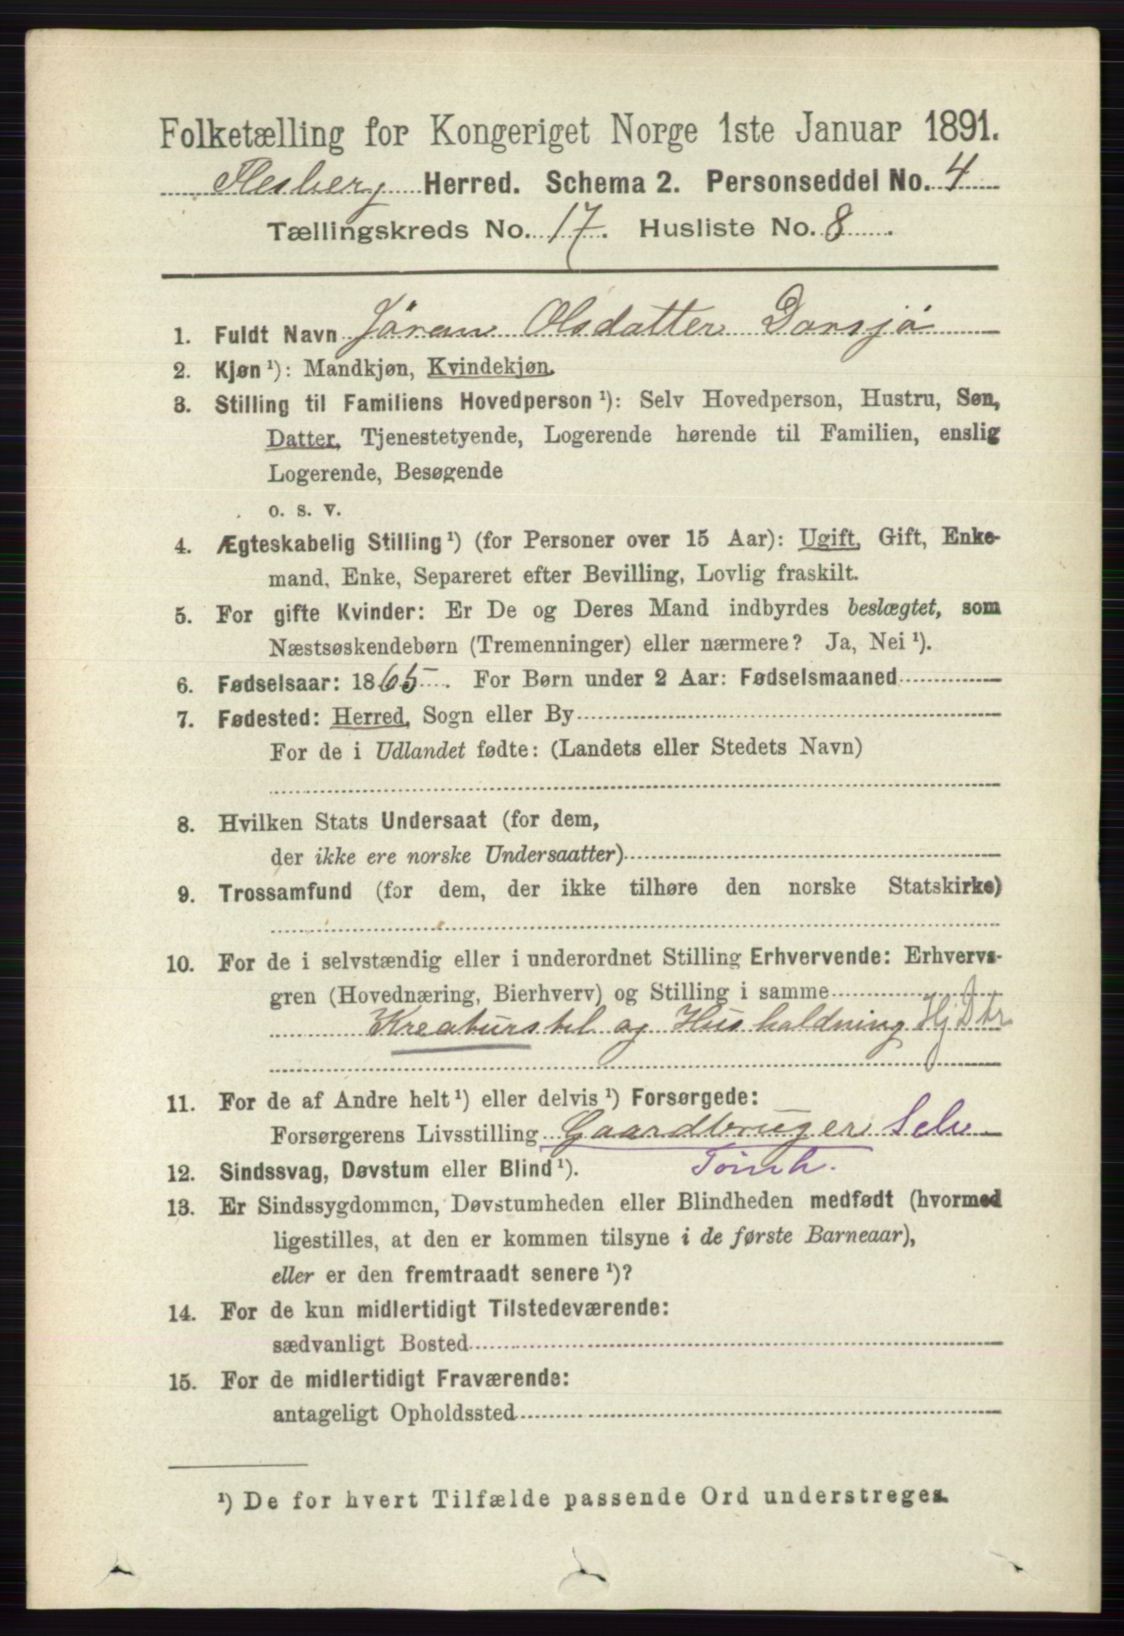 Folketælling for Kongeriget Norge 1ste Januar 1891.
Flesberg Herred. Schema 2. Personseddel No. 4
Tællingskreds No. 17. Husliste No. 8.
1. Fuldt Navn Jöran Olsdatter Dansjö
2. Kjøn ¹): Mandkjøn, Kvindekjøn.
3. Stilling til Familiens Hovedperson ¹): Selv Hovedperson, Hustru, Søn,
Datter, Tjenestetyende, Logerende hørende til Familien, enslig
Logerende, Besøgende
o. s. v.
4. Ægteskabelig Stilling ¹) (for Personer over 15 Aar): Ugift, Gift, Enke-
mand, Enke, Separeret efter Bevilling, Lovlig fraskilt.
5. For gifte Kvinder: Er De og Deres Mand indbyrdes beslægtet, som
Næstsøskendebørn (Tremenninger) eller nærmere? Ja, Nei ¹).
6. Fødselsaar: 1865. For Børn under 2 Aar: Fødselsmaaned
7. Fødested: Herred, Sogn eller By
For de i Udlandet fødte: (Landets eller Stedets Navn)
8. Hvilken Stats Undersaat (for dem,
der ikke ere norske Undersaatter)
9. Trossamfund (for dem, der ikke tilhøre den norske Statskirke)
10. For de i selvstændig eller i underordnet Stilling Erhvervende: Erhvervs-
gren (Hovednæring, Bierhverv) og Stilling i samme
Kreaturstel og Husholdning Hj Dtr
11. For de af Andre helt ¹) eller delvis ¹) Forsørgede:
Forsørgerens Livsstilling Gaardbruger Selv
12. Sindssvag, Døvstum eller Blind ¹).
13. Er Sindssygdommen, Døvstumheden eller Blindheden medfødt (hvormed
ligestilles, at den er kommen tilsyne i de første Barneaar),
eller er den fremtraadt senere ¹)?
14. For de kun midlertidigt Tilstedeværende:
sædvanligt Bosted
15. For de midlertidigt Fraværende:
antageligt Opholdssted
¹) De for hvert Tilfælde passende Ord understreges.